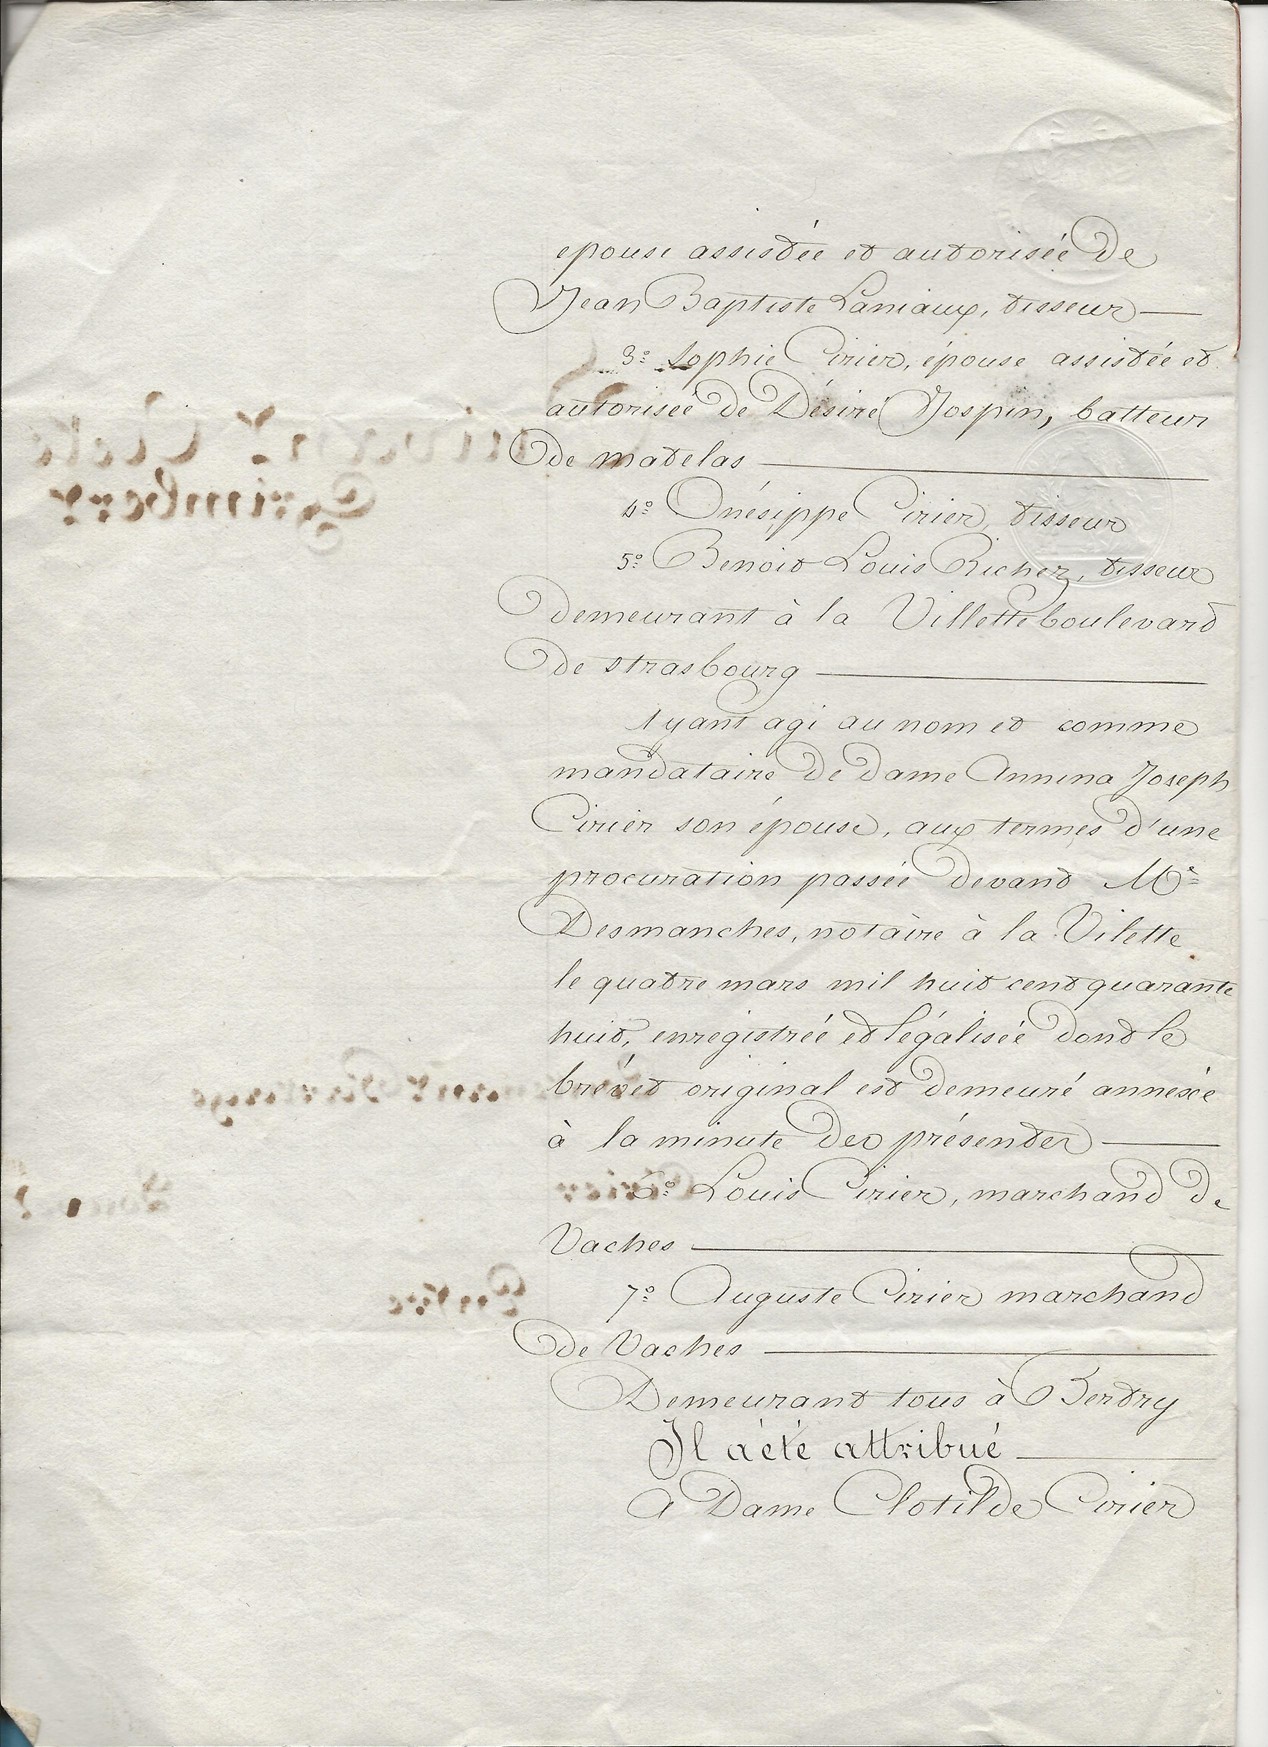 epouse assistée et autorisée de
Jean Baptiste Laniaux, tisseur
3° Sophie Cirier, épouse assistée et
autorisée de Désiré Jospin, batteur
de matelas
4° Onésippe Cirier, tisseur
5° Benoit Louis Richez, tisseur
demeurant à la Villette boulevard
de strasbourg
Ayant agi au nom et comme
mandataire de dame Annina Joseph
Cirier son épouse, aux termes d'une
procuration passée devant Me
Desmanches, notaire à la Vilette
le quatre mars mil huit cent quarante
huit, enregistrée et légalisée dont le
brévet original est demeuré annéxée
à la minute des présentes
6° Louis Cirier, marchand de
Vaches
7° Auguste Cirier marchand
de Vaches
Demeurant tous à Bertry
Il a été attribué
A Dame Clotilde Cirier